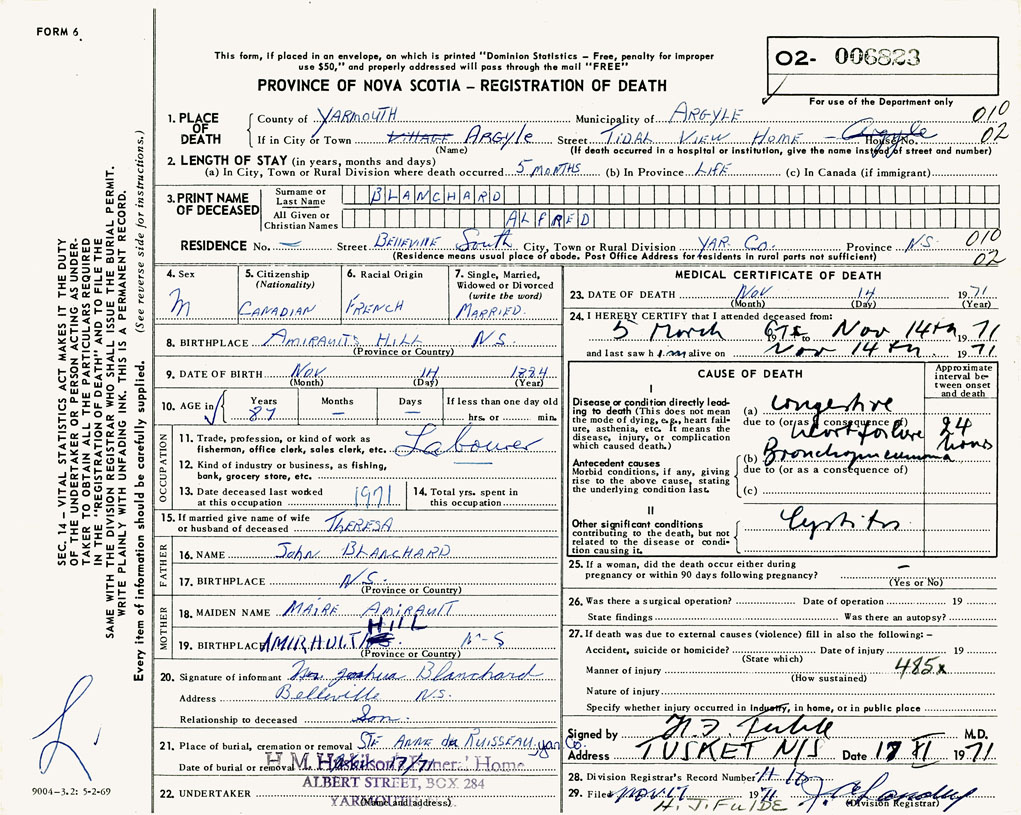 FORM 6
This form, if placed in an envelope, on which is printed "Dominion Statistics – Free, penalty for improper
use $50," and properly addressed will pass through the mail "FREE"
PROVINCE OF NOVA SCOTIA – REGISTRATION OF DEATH
O2- 006823
For use of the Department only
SEC. 14 – VITAL STATISTICS ACT MAKES IT THE DUTY
OF THE UNDERTAKER OR PERSON ACTING AS UNDER-
TAKER TO OBTAIN ALL THE PARTICULARS REQUIRED
IN THE "REGISTRATION OF DEATH" AND TO FILE THE
SAME WITH THE DIVISION REGISTRAR WHO SHALL ISSUE THE BURIAL PERMIT.
WRITE PLAINLY WITH UNFADING INK. THIS IS A PERMANENT RECORD.
Every item of information should be carefully supplied. (See reverse side for instructions.)
1. PLACE OF DEATH County of YARMOUTH Municipality of ARGYLE 010
If in City or Town VILLAGE ARGYLE Street TIDAL VIEW HOME – Argyle House No. 02
(Name) (If death occurred in a hospital or institution, give the name instead of street and number)
2. LENGTH OF STAY (in years, months and days)
(a) In City, Town or Rural Division where death occurred 5 MONTHS (b) In Province LIFE (c) In Canada (if immigrant)
3. PRINT NAME OF DECEASED Surname or Last Name BLANCHARD
All Given or Christian Names ALFRED
RESIDENCE No. – Street BELLEVILLE South City, Town or Rural Division YAR. Co. Province N.S. 010
(Residence means usual place of abode. Post Office Address for residents in rural parts not sufficient) 02
4. Sex M
5. Citizenship (Nationality) CANADIAN
6. Racial Origin FRENCH
7. Single, Married, Widowed or Divorced (write the word) MARRIED.
8. BIRTHPLACE AMIRAULTS HILL N.S.
(Province or Country)
9. DATE OF BIRTH NOV 14 1884
(Month) (Day) (Year)
10. AGE in Years 87 Months – Days – If less than one day old hrs. or min.
OCCUPATION
11. Trade, profession, or kind of work as fisherman, office clerk, sales clerk, etc. Labourer
12. Kind of industry or business, as fishing, bank, grocery store, etc.
13. Date deceased last worked at this occupation 1971
14. Total yrs. spent in this occupation
15. If married give name of wife or husband of deceased THERESA
FATHER
16. NAME John BLANCHARD
17. BIRTHPLACE N.S.
(Province or Country)
MOTHER
18. MAIDEN NAME MAIRE AMIRAULT
19. BIRTHPLACE AMIRAULT HILL N-S
(Province or Country)
20. Signature of informant Blanchard
Address Belleville N.S.
Relationship to deceased Son.
21. Place of burial, cremation or removal STE ANNE du RUISSEAU, yar Co.
Date of burial or removal 17/71
22. UNDERTAKER
H. M. Funeral Home
ALBERT STREET, BOX 284
YARMOUTH
(Name and address)
9004-3.2: 5-2-69
MEDICAL CERTIFICATE OF DEATH
23. DATE OF DEATH NOV 14 1971
(Month) (Day) (Year)
24. I HEREBY CERTIFY that I attended deceased from:
5 March 1967 to Nov 14th 1971
and last saw him alive on Nov 14th 1971
CAUSE OF DEATH
Approximate interval between onset and death
I
Disease or condition directly leading to death (This does not mean the mode of dying, e.g., heart failure, asthenia, etc. It means the disease, injury, or complication which caused death.)
(a) Congestive
due to (or as a consequence of)
Heart failure 24 hours
(b) Bronchopneumonia
due to (or as a consequence of)
(c)
Antecedent causes
Morbid conditions, if any, giving rise to the above cause, stating the underlying condition last.
II
Other significant conditions
contributing to the death, but not related to the disease or condition causing it.
Cystitis
25. If a woman, did the death occur either during pregnancy or within 90 days following pregnancy? –
(Yes or No)
26. Was there a surgical operation? Date of operation 19
State findings Was there an autopsy?
27. If death was due to external causes (violence) fill in also the following: –
Accident, suicide or homicide? Date of injury 19
(State which)
Manner of injury 485x
(How sustained)
Nature of injury
Specify whether injury occurred in industry, in home, or in public place
Signed by M.D.
Address TUSKET N/S Date 17 XI 1971
28. Division Registrar's Record Number
29. Filed Nov. 17 1971
(Division Registrar)